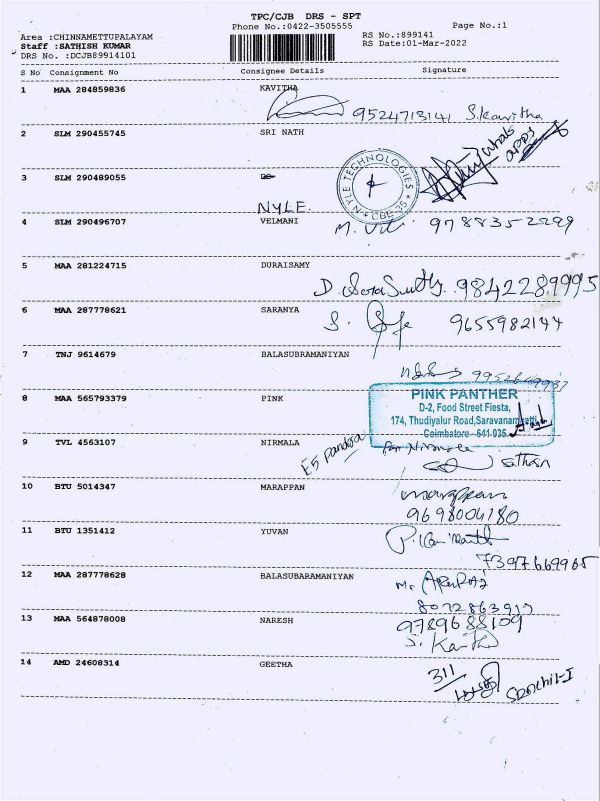 TPC/CJB DRS - SPT
Phone No.:0422-3505555 Page No.:1
Area :CHINNAMETTUPALAYAM RS No.:899141
Staff :SATHISH KUMAR RS Date:01-Mar-2022
DRS No. :DCJB89914101
S No Consignment No Consignee Details Signature
1 MAA 284859836 KAVITHA
9524713141 S.Kavitha
2 SLM 290455745 SRI NATH
whats
apps
3 SLM 290489055
NYLE TECHNOLOGIES
CBE 35
NYLE.
4 SLM 290496707 VELMANI
9788352299
5 MAA 281224715 DURAISAMY
9842289995
6 MAA 287778621 SARANYA
9655982144
7 TNJ 9614679 BALASUBRAMANIYAN
8 MAA 565793379 PINK
PINK PANTHER
D-2, Food Street Fiesta,
174, Thudiyalur Road, Saravanampatti,
Coimbatore - 641 035.
9 TVL 4563107 NIRMALA
E5 Pandora
10 BTU 5014347 MARAPPAN
marappan
9698004180
11 BTU 1351412 YUVAN
7397669965
12 MAA 287778628 BALASUBARAMANIYAN
13 MAA 564878008 NARESH
9789688109
14 AMD 24608314 GEETHA
311